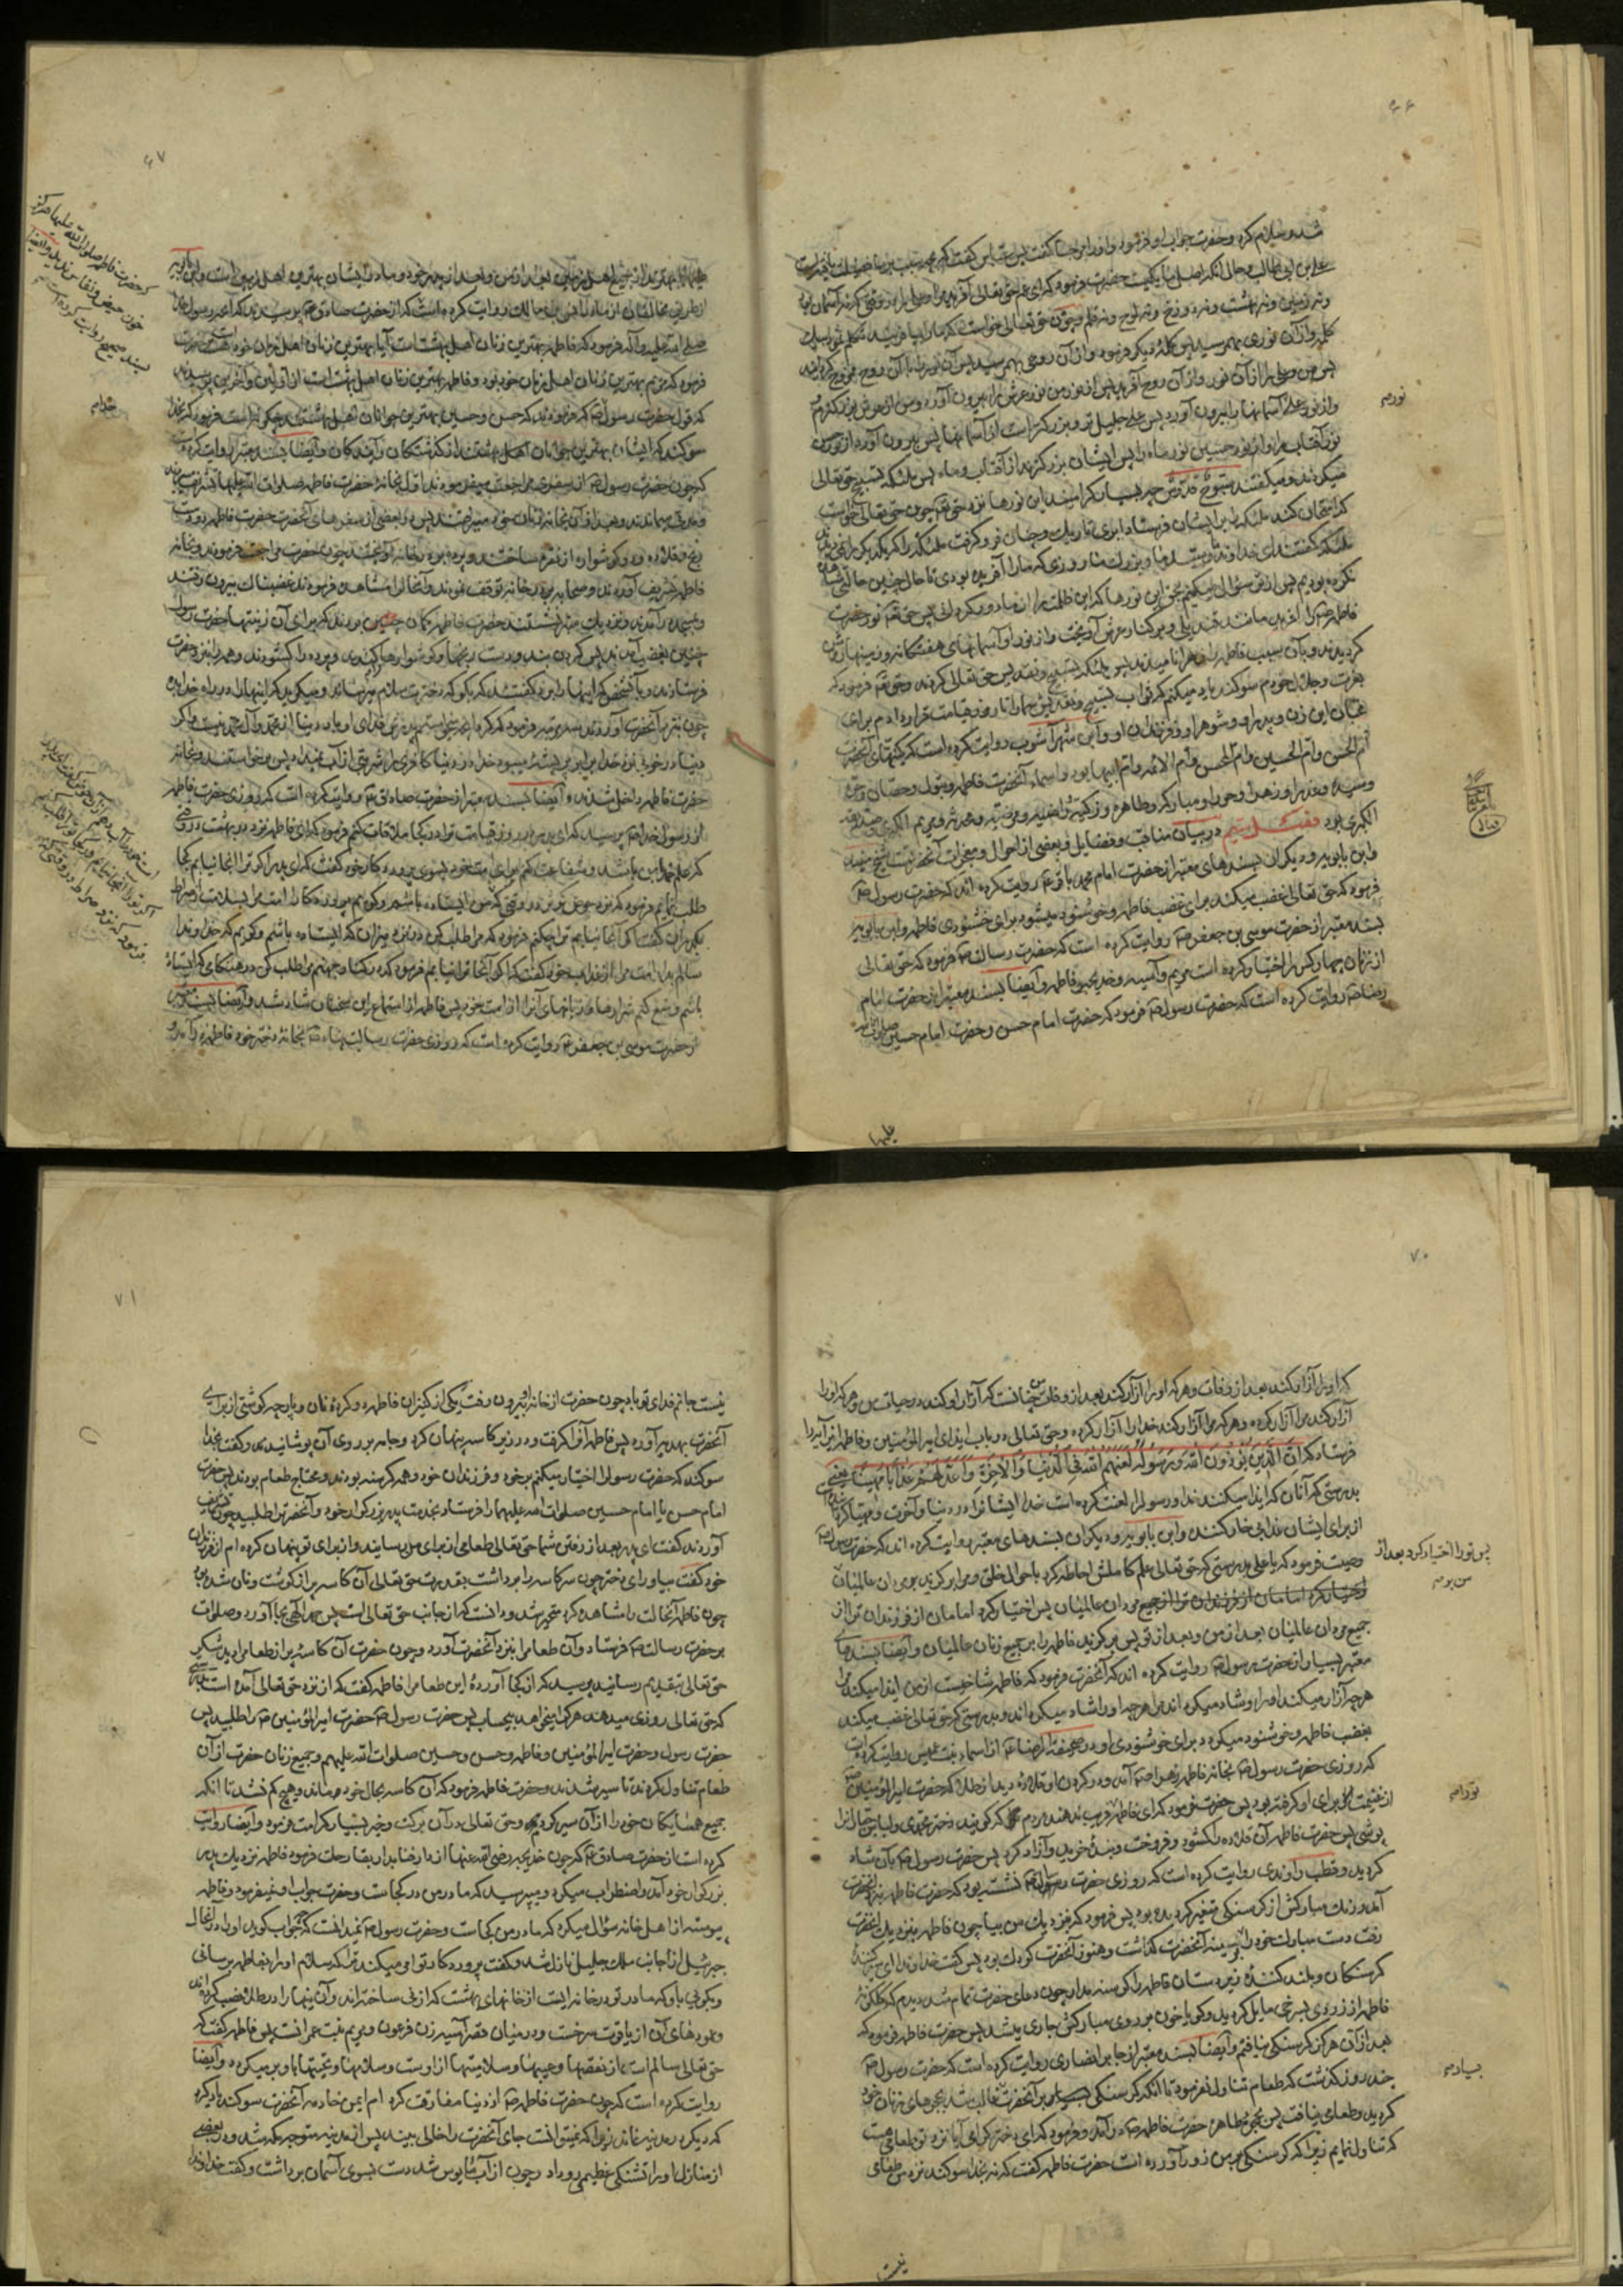 ۶۶
شد و سلام کرد و حضرت جواب او فرمود و او را مرحبا گفت پس عباس گفت که بچه سبب بر ما فضیلت یافته است
علی بن ابی طالب و حال آنکه اصل ما یکیست حضرت فرمود که ای عم حق تعالی آفرید مرا و علی را در وقتی که نه آسمان بود
و نه زمین و نه بهشت و نه دوزخ و نه لوح و نه قلم و چون حق تعالی خواست که ما را بیافریند تکلم نمود بیک
کلمه و از آن نوری بهم رسید پس کلمه دیگر فرمود و از آن روحی بهم رسید پس آن نور را با آن روح ممزوج گردانید
پس من و علی را از آن نور و از آن روح آفرید پس از نور من نور عرش را بیرون آورد و من از عرش بزرگترم
و از نور علی آسمانها را بیرون آورد پس علی جلیل تر و بزرگتر است از آسمانها پس بیرون آورد از نور حسن
نور آفتاب را و از نور حسین نور ماه را پس ایشان بزرگترند از آفتاب و ماه پس ملئکه تسبیح حق تعالی
میکردند و میگفتند سبوح قدوس چه بسیار گرامیند این نورها نزد حق تعالی چون حق تعالی خواست
که امتحان کند ملئکه را بر ایشان فرستاد ابری تاریک و چنان فرو گرفت ملئکه را که یکدیگر را نمی دیدند
ملئکه گفتند ای خداوند و سید ما و بزرگ ما از روزی که ما را آفریده بودی تا حال چنین حالتی مشاهده
نکرده بودیم پس از تو سؤال میکنیم بحق این نورها که این ظلمت را از ما دور گردانی پس حق تعالی نور حضرت
فاطمه را آفرید مانند قندیلی و بر کنار عرش آویخت و از نور او آسمانهای هفتگانه و زمینها روشن
گردیدند و بآن سبب فاطمه را زهرا نامیدند پس ملئکه تسبیح و تقدیس حق تعالی کردند و حق تعالی فرمود که
بعزت و جلال خودم سوگند یاد میکنم که ثواب تسبیح و تقدیس شما را تا روز قیامت قرار دادم برای
محبّان این زن و پدر او و شوهر او و فرزندان او و ابن شهر آشوب روایت کرده است که کنیتهای آنحضرت
ام الحسن و ام الحسین و ام المحسن و ام الائمه و ام ابیها بود و اسماء آنحضرت فاطمه و بتول و حصان و حره
و سیده و عذرا و زهرا و حورا و مبارکه و طاهره و زکیه و راضیه و مرضیه و محدثه و مریم الکبری و صدیقه
الکبری بود فصل سیم در بیان مناقب و فضایل و بعضی از احوال و معجزات آنحضرت شیخ مفید
و ابن بابویه و دیگران بسندهای معتبر از حضرت امام محمد باقر روایت کرده اند که حضرت رسول
فرمود که حق تعالی غضب میکند برای غضب فاطمه و خوشنود میشود برای خشنودی فاطمه و ابن بابویه
بسند معتبر از حضرت موسی بن جعفر روایت کرده است که حضرت رسالت فرمود که حق تعالی
از زنان چهار کس را اختیار کرده است مریم و آسیه و خدیجه و فاطمه و ایضا بسند معتبر از حضرت امام
رضا روایت کرده است که حضرت رسول فرمود که حضرت امام حسن و حضرت امام حسین
علیهما
۶۷
از طریق مخالفان از زیاد روایت کرده است که از حضرت صادق پرسیدند که آنچه رسول خدا
صلی الله علیه و آله فرمود که فاطمه بهترین زنان اهل بهشت است آیا بهترین زنان اهل زمان خود است حضرت
فرمود که مریم بهترین زنان اهل زمان خود بود و فاطمه بهترین زنان اهل بهشت است از اولین و آخرین پرسیدند
که قول حضرت رسول که فرمودند که حسن و حسین بهترین جوانان اهل بهشتند چگونه است فرمود که بخدا
سوگند که ایشان بهترین جوانان اهل بهشتند از گذشتگان و آیندگان و ایضا بسند معتبر روایت کرده است
که چون حضرت رسول از سفری مراجعت میفرمودند اول بخانه حضرت فاطمه صلوات الله علیها تشریف میبردند
و مدتی میماندند و بعد از آن بخانه زنان خود میرفتند پس در بعضی از سفرهای آنحضرت حضرت فاطمه دو دست
رنج و قلاده و دو گوشواره از نقره ساختند و پرده بدر خانه آویختند چون حضرت مراجعت فرمودند و بخانه
فاطمه تشریف آوردند و صحابه بر در خانه توقف نمودند و آنحال را مشاهده فرمودند غضبناک بیرون رفتند
و بمسجد درآمدند و نزدیک منبر نشستند حضرت فاطمه گمان بردند که برای آن زینتها حضرت رسول
چنین بغضب آمدند پس گردن بند و دست رنجها و گوشوارها را کندند و پرده را گشودند و همه را نزد حضرت
فرستادند و بآن شخص که اینها را برد گفتند که بگو که دخترت سلام میرساند و میگوید که اینها را در راه خدا بده
چون بنزد آنحضرت آوردند سه مرتبه فرمود که کرد آنچه میخواستم پدرش فدای او باد دنیا از محمد و آل محمد نیست و اگر
دنیا در خوبی نزد خدا برابر پر پشه میبود خدا در دنیا کافری را شربتی آب نمیداد پس برخواستند و بخانه
حضرت فاطمه داخل شدند و ایضا بسند معتبر از حضرت صادق روایت کرده است که روزی حضرت فاطمه
از رسول خدا پرسید که ای پدر در روز قیامت ترا در کجا ملاقات کنم فرمود که ای فاطمه نزد در بهشت در وقتی
که علم حمد با من باشد و شفاعت کنم برای امت خود بسوی پروردگار خود گفت که ای پدر اگر ترا آنجا نیابم کجا
طلب نمایم فرمود که نزد حوض کوثر در وقتی که من ایستاده باشم و گویم پروردگارا امت مرا بسلامت از صراط
بگذران گفت اگر آنجا نیابم ترا چکنم فرمود که مرا طلب کن در نزد میزان که ایستاده باشم و گویم که خداوندا
سالم بدار امت مرا از عذاب خود گفت که اگر آنجا ترا نیابم فرمود که در کنار جهنم مرا طلب کن در هنگامی که ایستاده
باشم و منع کنم شرارها و زبانهای آنرا از امت خود پس فاطمه از استماع این سخنان شاد شد و ایضا بسند معتبر
از حضرت موسی بن جعفر روایت کرده است که روزی حضرت رسالت پناه بخانه دختر خود فاطمه درآمد و
۷۰
که او را آزار کند بعد از وفات و هر که او را آزار کند بعد از وفات من چنانست که آزار او کند در حیات من و هر که او را
آزار کند مرا آزار کرده و هر که مرا آزار کند خدا را آزار کرده و حق تعالی در باب ایذای امیر المؤمنین و فاطمه این آیه را
فرستاد که ان الذین یؤذون الله و رسوله لعنهم الله فی الدنیا والآخرة واعد لهم عذابا مهینا یعنی
بدرستی که آنان که ایذا میکنند خدا و رسول را لعنت کرده است خدا ایشانرا در دنیا و آخرت و مهیا کرده
از برای ایشان عذابی خوار کننده و ابن بابویه و دیگران بسندهای معتبر روایت کرده اند که حضرت رسول
وصیت فرمود که یا علی بدرستی که حق تعالی علم کاملش احاطه کرد باحوال خلق و مرا برگزید بر مردان عالمیان
جمیع مردان عالمیان بعد از من و بعد از تو پس برگزید فاطمه را بر جمیع زنان عالمیان و ایضا بسندهای
معتبر بسیار از حضرت رسول روایت کرده اند که آنحضرت فرمود که فاطمه شاخیست از من ایذا میکند مرا
هر چه آزار میکند او را و شاد میگرداند مرا هر چه او را شاد میگرداند و بدرستی که حق تعالی غضب میکند
بغضب فاطمه و خوشنود میگردد برای خوشنودی او و در صحیفة الرضا از اسماء بنت عمیس روایت کرده است
که روزی حضرت رسول بخانه فاطمه زهرا آمد و در گردن او قلاده دید از طلا که حضرت امیر المؤمنین
از غنیمت برای او گرفته بود پس حضرت فرمود که ای فاطمه فریب ندهند مردم که گویند دختر محمدی و لباس جباران
پوشی پس حضرت فاطمه آن قلاده را گشود و فروخت و بنده خرید و آزاد کرد پس حضرت رسول بآن شاد
گردید و قطب راوندی روایت کرده است که روزی حضرت رسول نشسته بود که حضرت فاطمه بنزد آنحضرت
آمد و رنگ مبارکش از گرسنگی متغیر گردیده بود پس فرمود که نزدیک من بیا چون فاطمه بنزدیک آنحضرت
رفت دست مبارک خود را بر سینه آنحضرت گذاشت و هنوز آنحضرت کودک بود پس گفت خداوندا ای سیر کننده
گرسنگان و بلند کننده زیردستان فاطمه را گرسنه مدار چون دعای حضرت تمام شد دیدم که گلگونه
فاطمه از زردی بسرخی مایل گردید و گویا خون بر روی مبارکش جاری میشد پس حضرت فاطمه فرمود که
بعد از آن هرگز گرسنگی نیافتم و ایضا بسند معتبر از جابر انصاری روایت کرده است که حضرت رسول
چند روز گذشت که طعام تناول نفرمود تا آنکه گرسنگی بر آنحضرت غالب شد بحجرهای زنان خود
گردید و طعامی نیافت پس بحجره طاهره حضرت فاطمه درآمد و فرمود که ای دختر گرامی آیا نزد تو طعامی هست
که تناول نمایم زیرا که گرسنگی بر من زور آورده است حضرت فاطمه گفت که نه بخدا سوگند نزد من طعامی
نیست
پس تو را اختیار کرد بعد از
من بر
۷۱
نیست جانم فدای تو باد چون حضرت از خانه بیرون رفت یکی از کنیزان فاطمه دو گرده نان و پارچه گوشتی از برای
آنحضرت بهدیه آورد پس فاطمه آنرا گرفت و در زیر کاسه پنهان کرد و جامه بر روی آن پوشانید و گفت بخدا
سوگند که حضرت رسول را اختیار میکنم بر خود و فرزندان خود و همه گرسنه بودند و محتاج طعام بودند پس حضرت
امام حسن یا امام حسین صلوات الله علیهما را فرستاد بخدمت پدر بزرگوار خود و آنحضرت را طلبید چون تشریف
آوردند گفت ای پدر بعد از رفتن شما حق تعالی طعامی از برای من رسانید و از برای تو پنهان کرده ام از فرزندان
خود گفت بیاور ای دختر چون سر کاسه را برداشت بقدرت حق تعالی آن کاسه پر از گوشت و نان شده بود
چون فاطمه آنحالت را مشاهده کرد متحیر شد و دانست که از جانب حق تعالی است پس حمد الهی بجا آورد و صلوات
بر حضرت رسالت فرستاد و آن طعام را بنزد آنحضرت آورد و چون حضرت آن کاسه را پر از طعام دید شکر
حق تعالی بتقدیم رسانید پرسید که از کجا آورده این طعام را فاطمه گفت که از نزد حق تعالی آمده است
که حق تعالی روزی میدهد هر که را میخواهد بیحساب پس حضرت رسول حضرت امیر المؤمنین را طلبید پس
حضرت رسول و حضرت امیر المؤمنین و فاطمه و حسن و حسین صلوات الله علیهم و جمیع زنان حضرت از آن
طعام تناول کردند تا سیر شدند و حضرت فاطمه فرمود که آن کاسه بحال خود ماند و هیچ کم نشد تا آنکه
جمیع همسایگان خود را از آن سیر کردم و حق تعالی در آن برکت و خیر بسیار کرامت فرمود و ایضا روایت
کرده است از حضرت صادق که چون خدیجه رضی الله عنها از دار فنا بدار بقا رحلت فرمود فاطمه نزدیک پدر
بزرگوار خود آمد و اضطراب میکرد و میپرسید که مادر من در کجاست و حضرت جواب او نمیفرمود و فاطمه
پیوسته از اهل خانه سؤال میکرد که مادر من کجاست و حضرت رسول نمیدانست که چه جواب گوید او را در آنحال
جبرئیل از جانب ملک جلیل نازل شد و گفت پروردگار تو امر میکند ترا که سلام او را بفاطمه برسانی
و بگوئی باو که مادر تو در خانه ایست از خانهای بهشت که از نی ساخته اند و آن نیها را در طلا نصب کرده اند
و عمودهای آن از یاقوت سرخست و در میان قصر آسیه زن فرعون و مریم بنت عمرانست پس فاطمه گفت که
حق تعالی سالم است از نقصها و عیبها و سلامتیها از اوست و سلامها و تحیتها باو برمیگردد و ایضا
روایت کرده است که چون حضرت فاطمه از دنیا مفارقت کرد ام ایمن خادمه آنحضرت سوگند یاد کرد
که دیگر در مدینه نماند زیرا که نمیتوانست جای آنحضرت را خالی بیند پس از مدینه متوجه مکه شد و در بعضی
از منازل او را تشنگی عظیمی رو داد و چون از آب مأیوس شد دست بسوی آسمان برداشت و گفت خداوندا